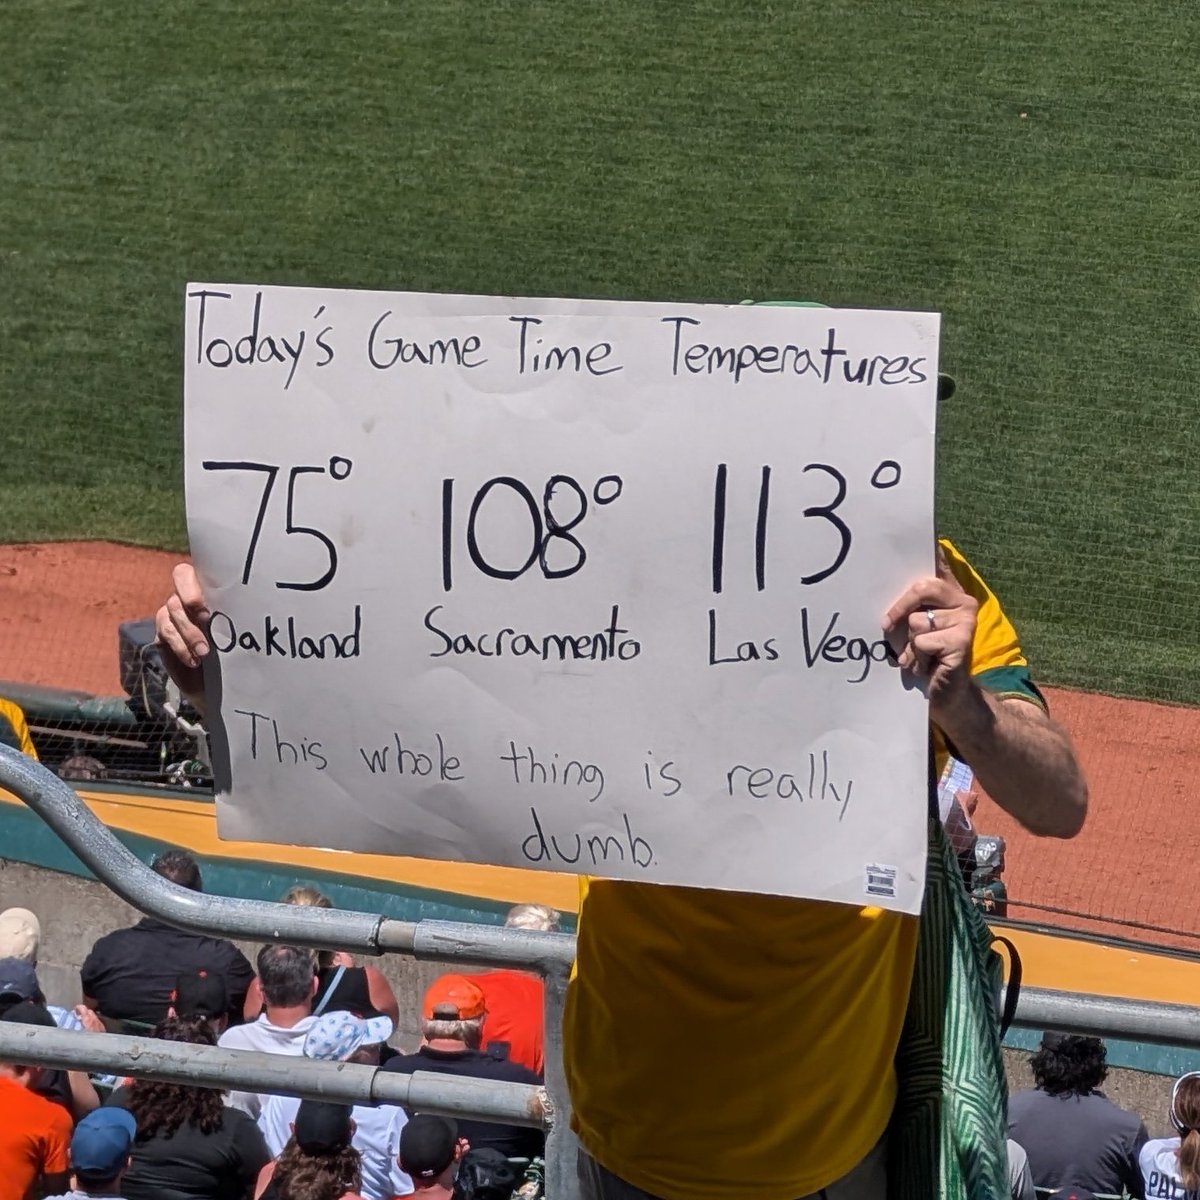 Today's Game Time Temperatures
75° 108° 113°
Oakland Sacramento Las Vega
This whole thing is really
dumb.